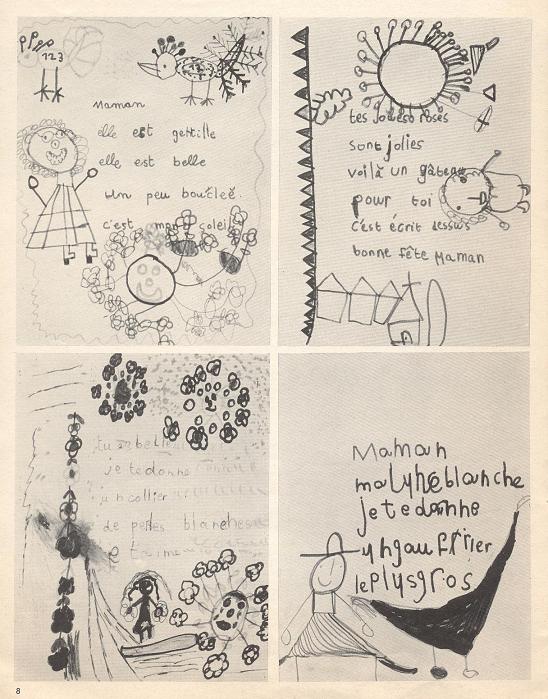 123
maman
elle est gentille
elle est belle
un peu bouclée.
c'est mon soleil
tes joues roses
sont jolies
voilà un gâteau
pour toi
c'est écrit dessus
bonne fête Maman
tu es belle
je te donne
un collier
de perles blanches
je t'aime
Maman
ma lune blanche
je te donne
un gaufrier
le plus gros
8